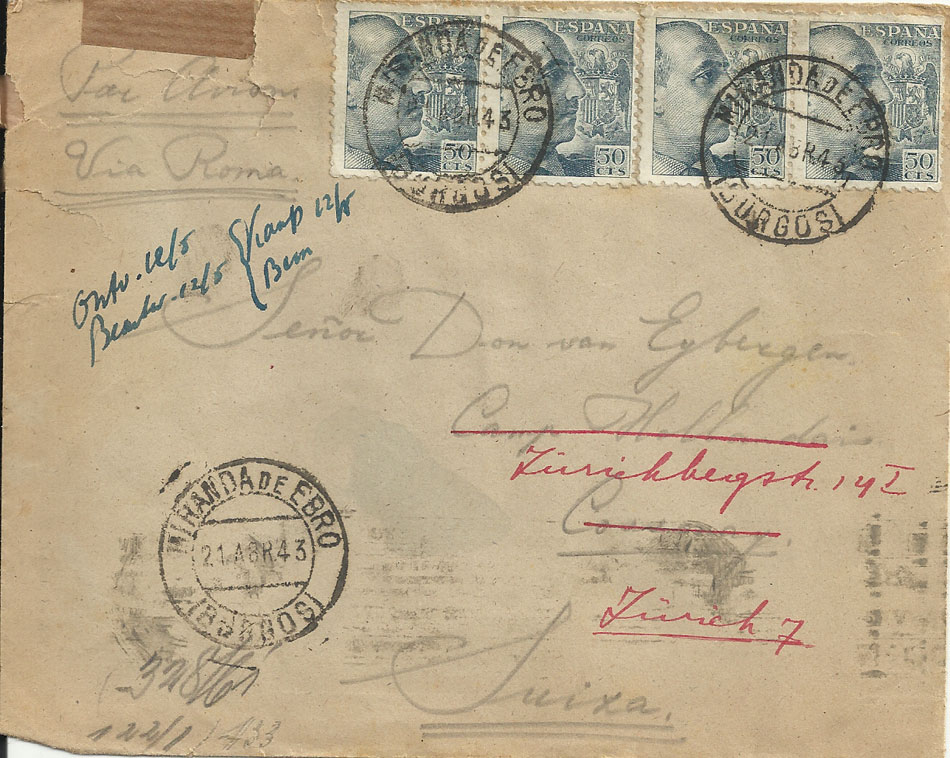 Par Avion
Via Roma
ESPAÑA
CORREOS
50 CTS
ESPAÑA
CORREOS
50 CTS
ESPAÑA
CORREOS
50 CTS
ESPAÑA
CORREOS
50 CTS
MIRANDA DE EBRO
ABR 43
(BURGOS)
MIRANDA DE EBRO
21 ABR 43
(BURGOS)
12/5
12/5 Kamp 12/5
Bern
Señor Don van Eybergen
Camp
Zürichbergstr. 14I
Zürich 7
Suiza.
MIRANDA DE EBRO
21 ABR 43
(BURGOS)
122/1 / 433